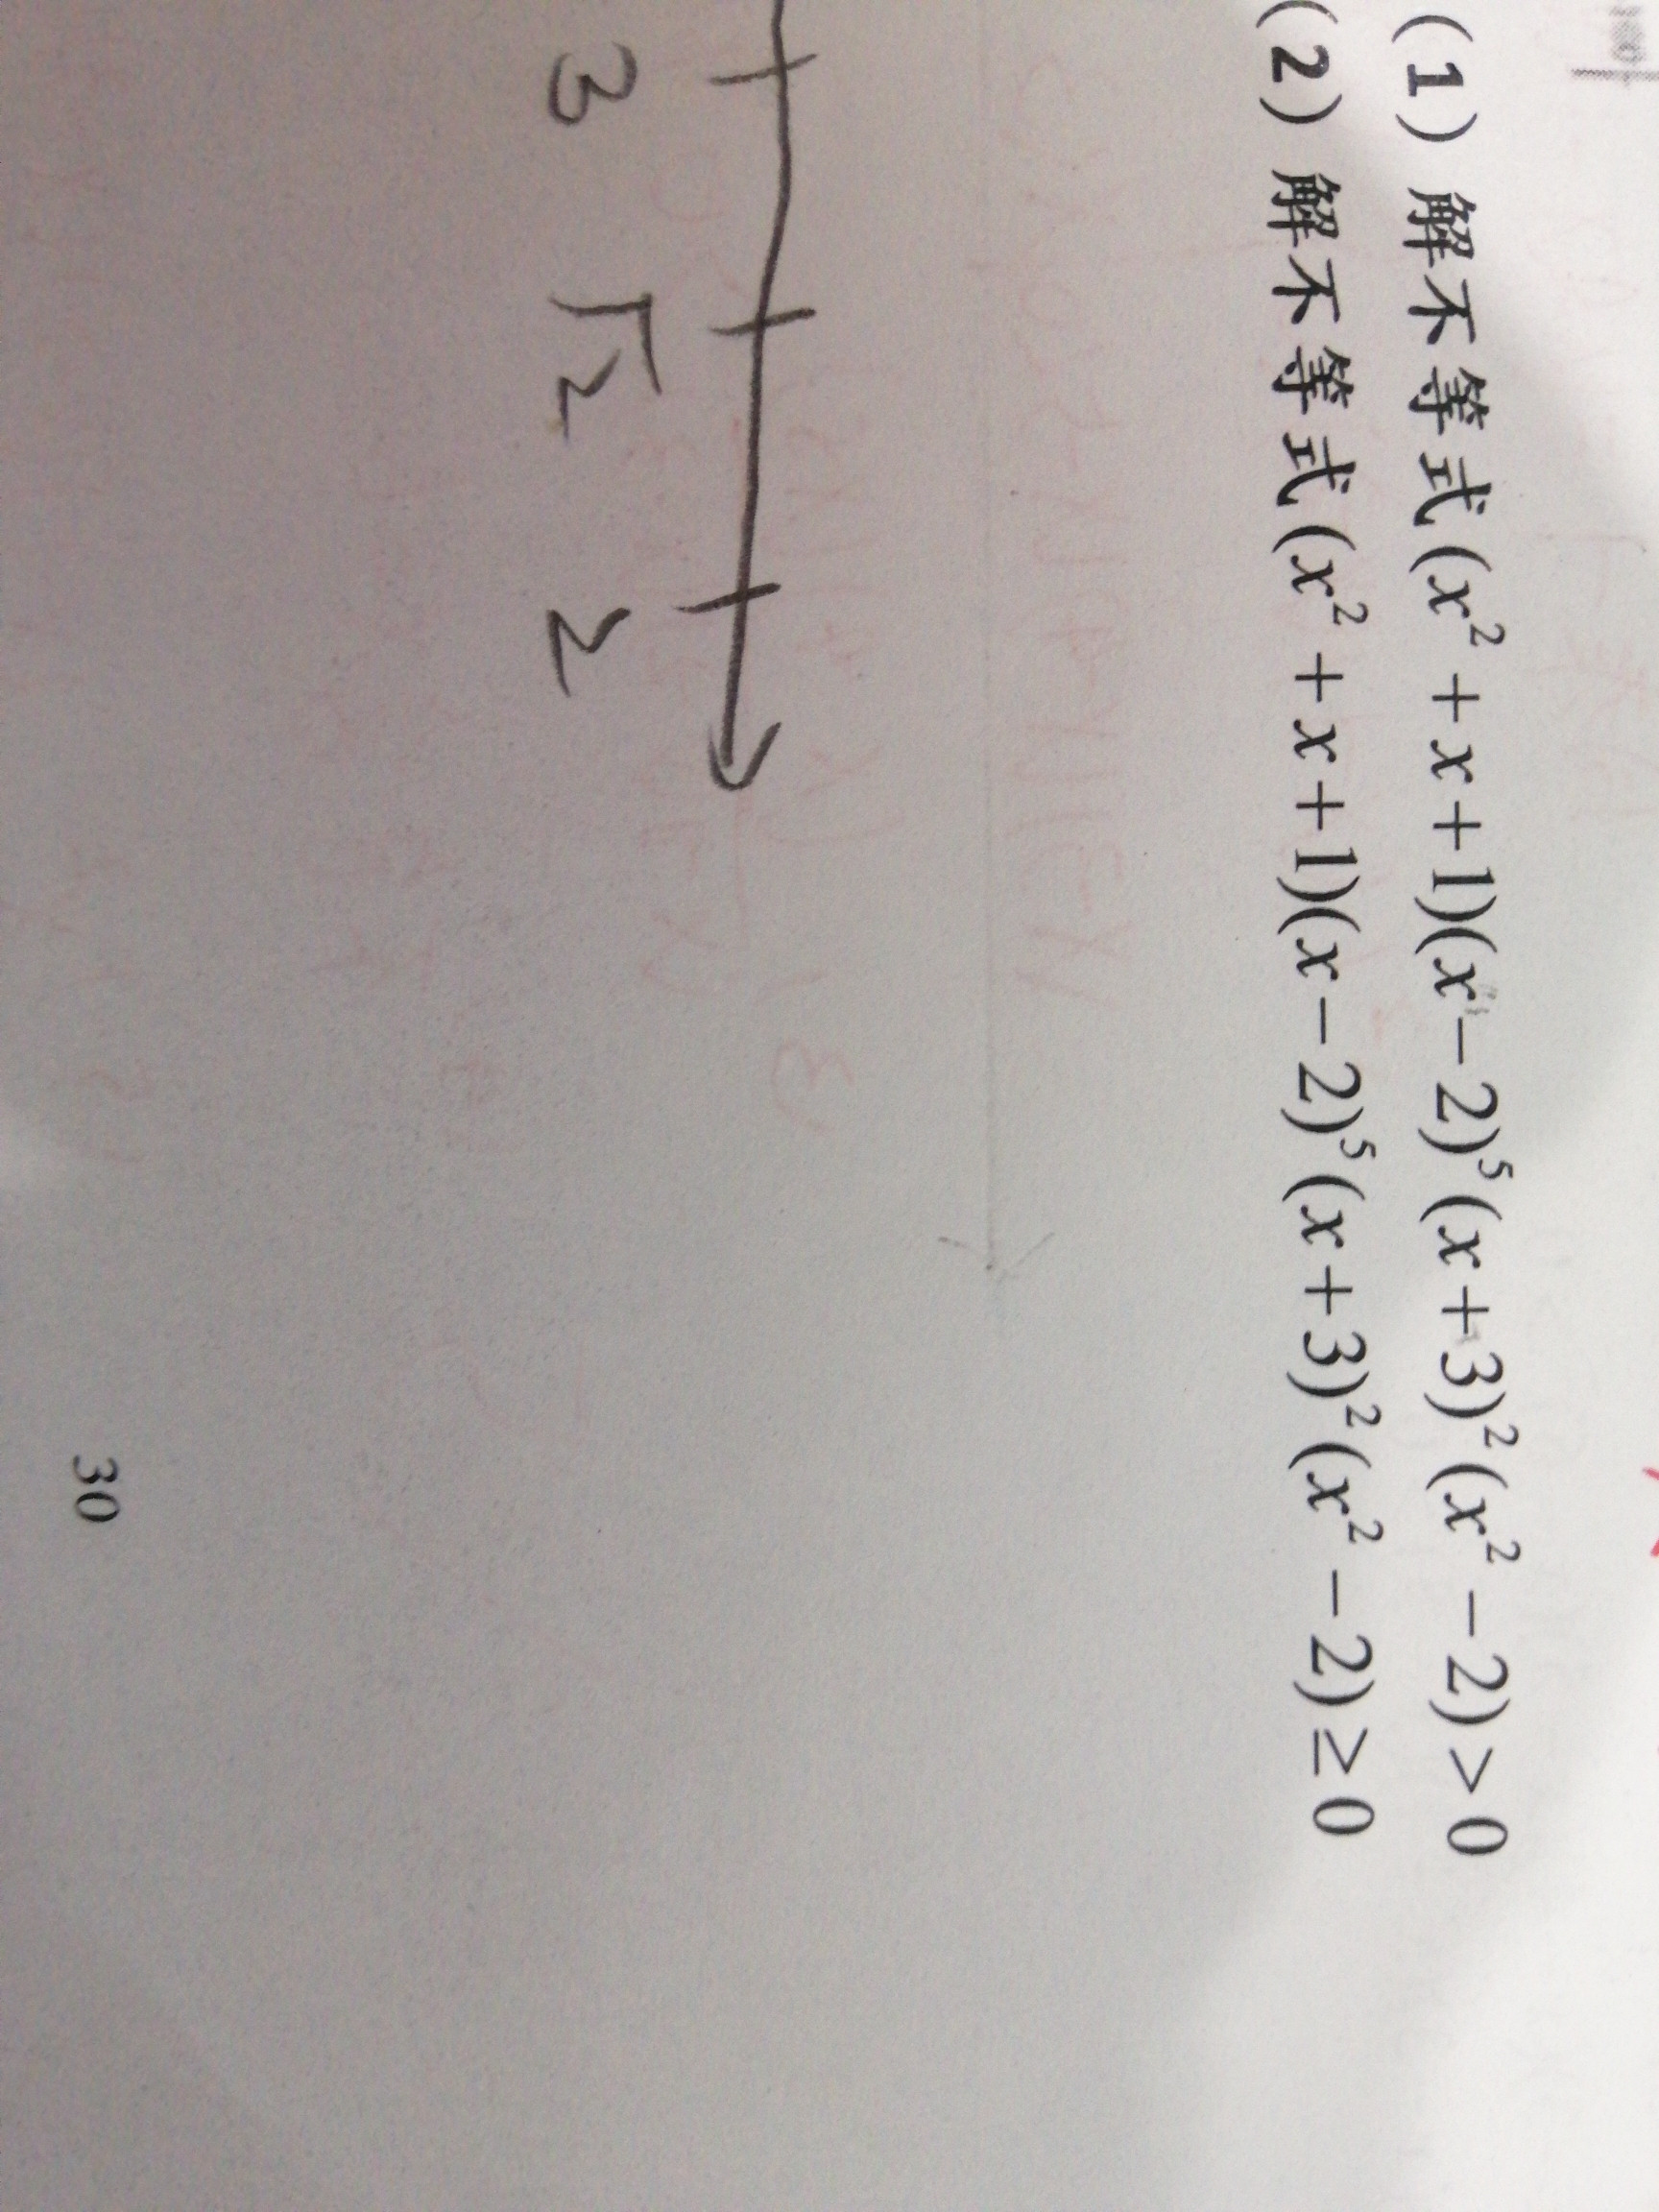 (1) 解不等式(x²+x+1)(x-2)⁵(x+3)²(x²-2)>0
(2) 解不等式(x²+x+1)(x-2)⁵(x+3)²(x²-2)≥0
3 √2 2
30